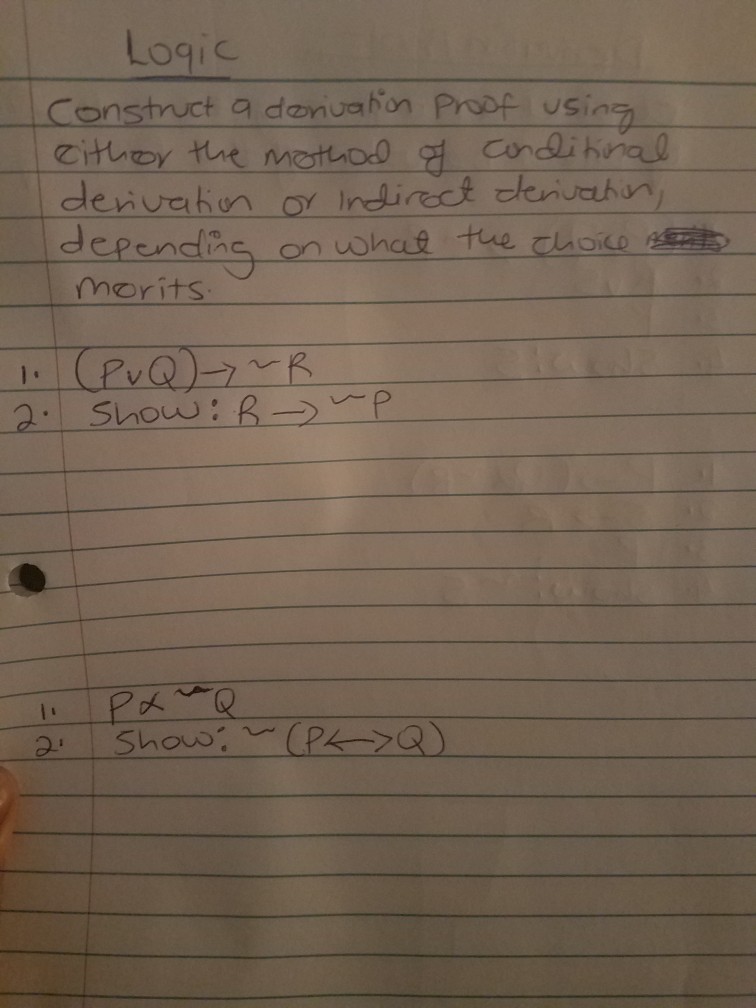 Logic
Construct a derivation Proof using
either the method of conditional
derivation or indirect derivation,
depending on what the choice
merits.
1. (PvQ)→~R
2. Show: R→~P
1. P&~Q
2. Show: ~(P<->Q)